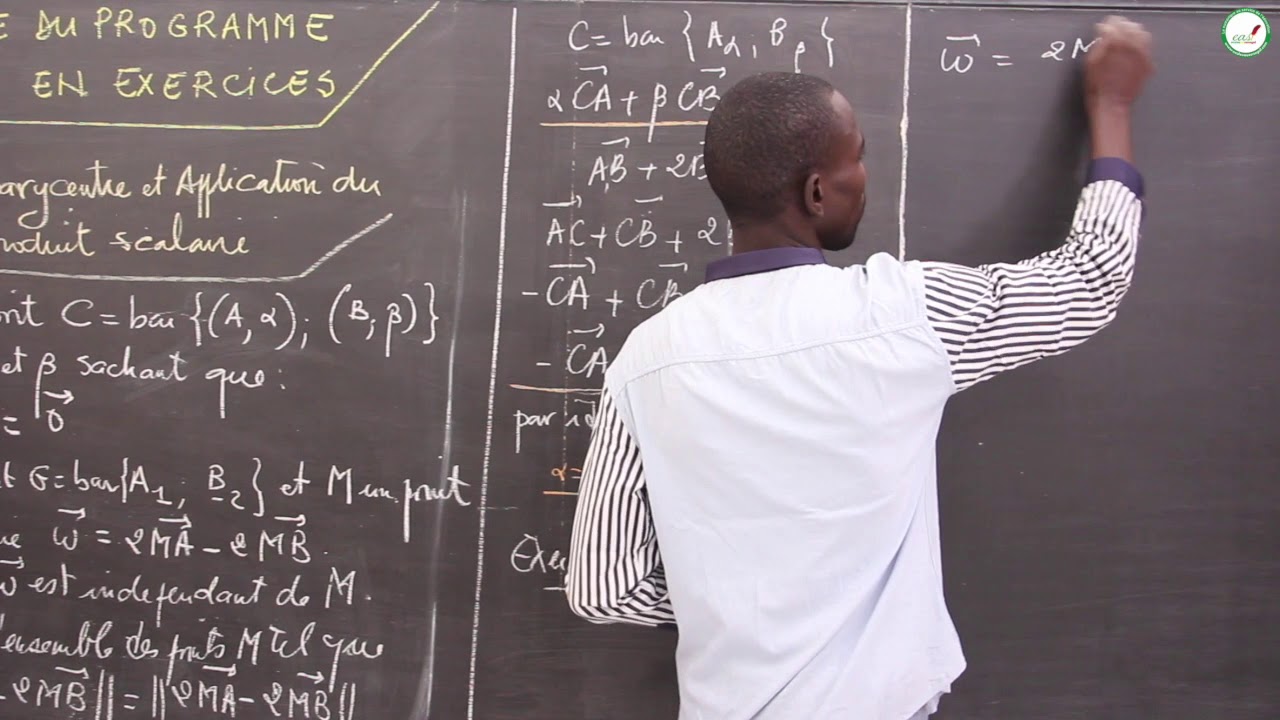 DU PROGRAMME
EN EXERCICES
arycentre et Application du
roduit scalaire
C = bar {(A, α); (B, β)}
et β sachant que:
= 0⃗
G = bar{A₁; B₂} et M un point
w⃗ = 2MA⃗ - 2MB⃗
w⃗ est independant de M.
ensemble des points M tel que
- 2MB⃗|| = ||2MA⃗ - 2MB⃗||
C = bar {A α; B β}
α CA⃗ + β CB⃗
AB⃗ + 2
AC⃗ + CB⃗ + 2
- CA⃗ + CB⃗
- CA⃗
par
α =
w⃗ = 2M
eas